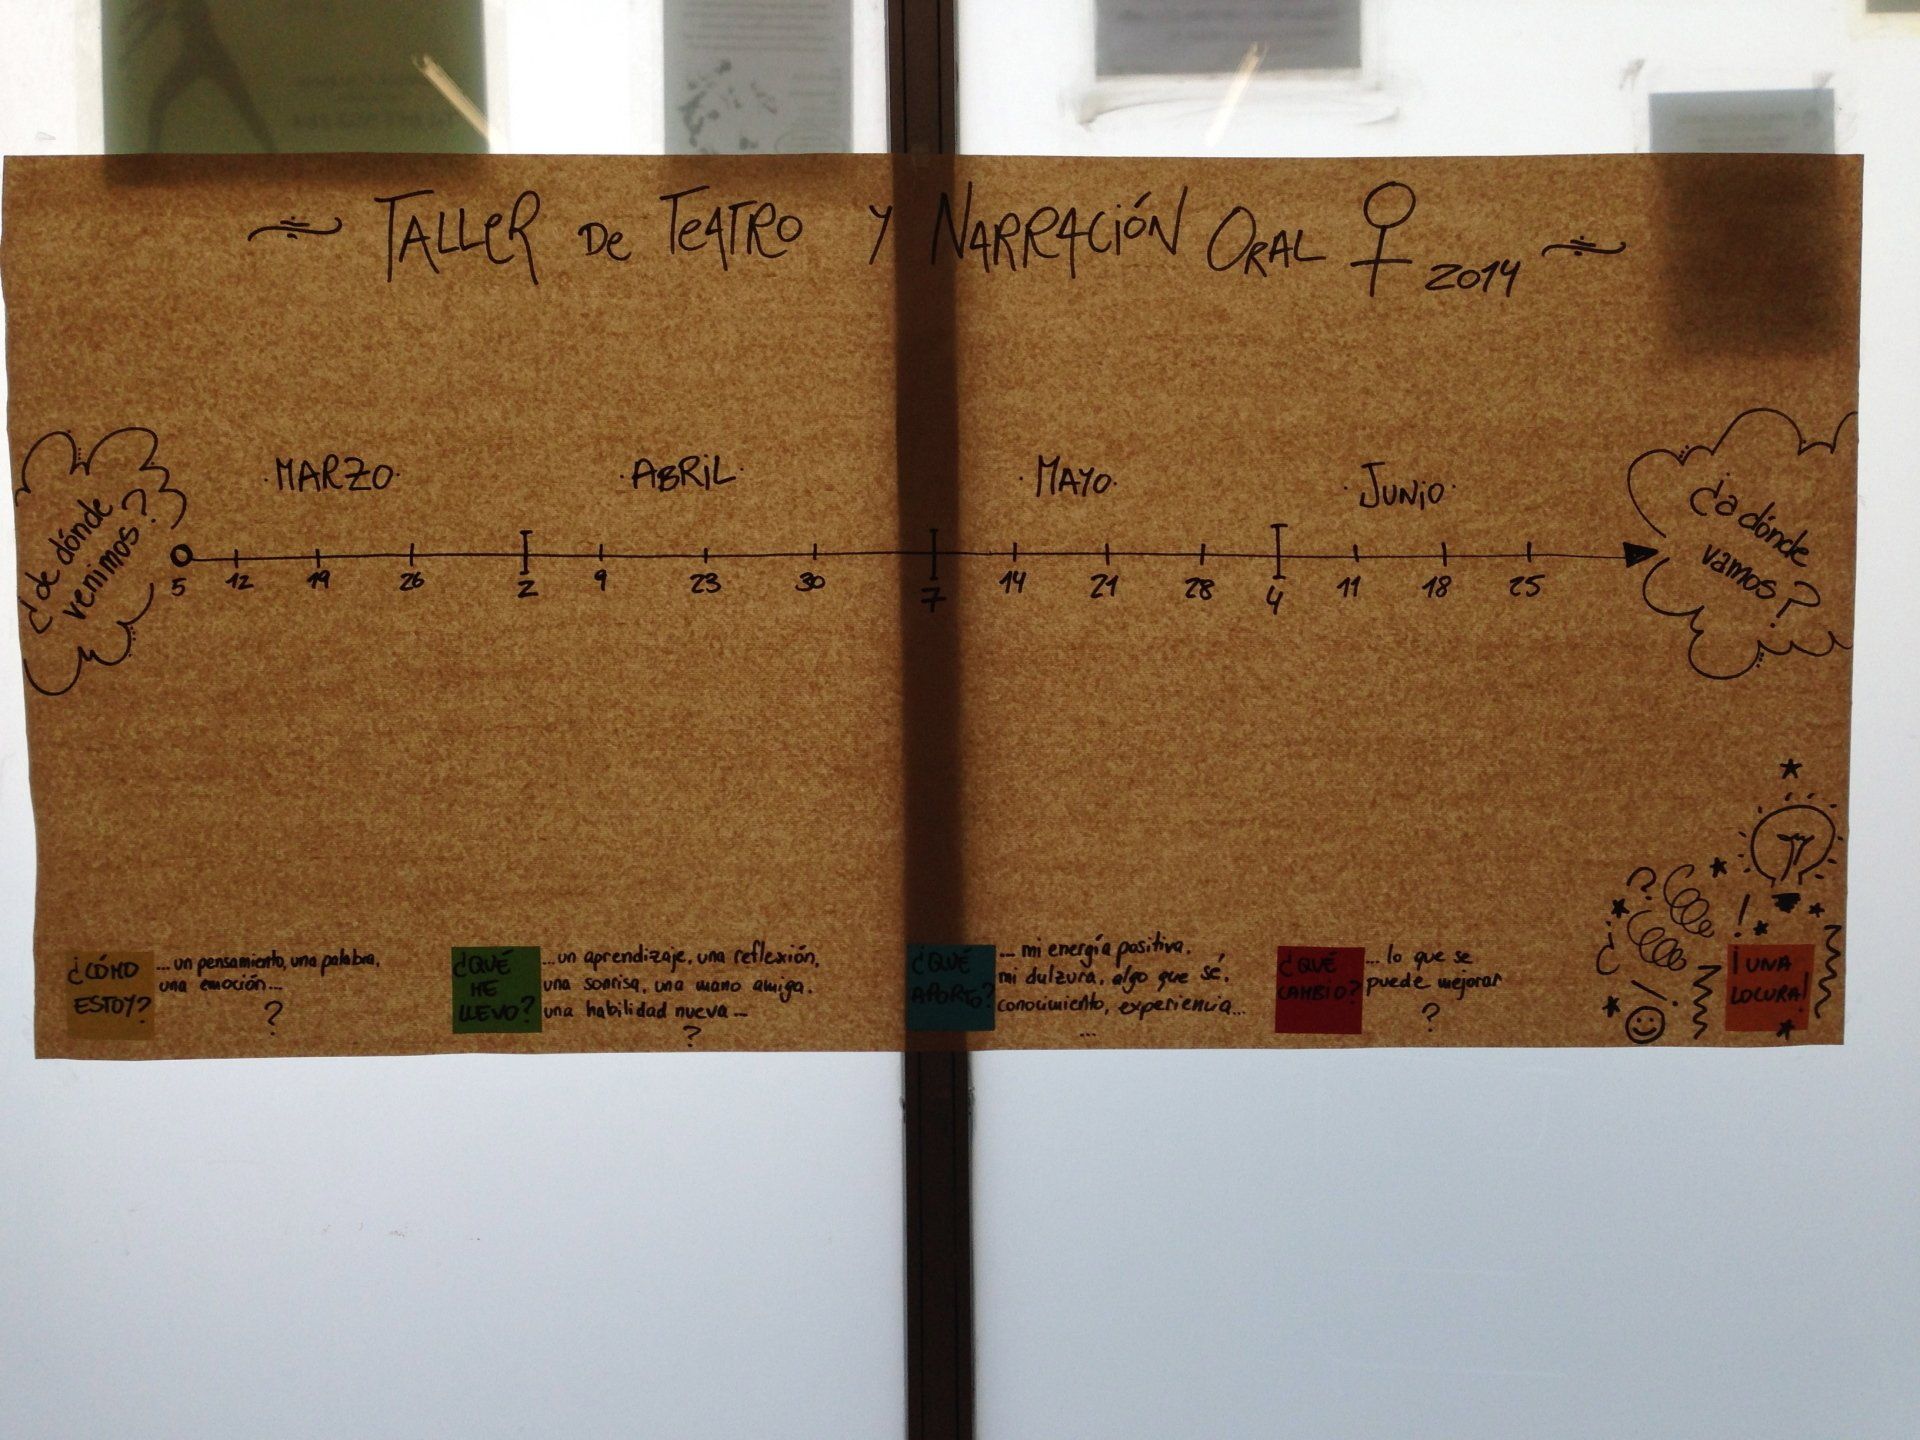 TALLER DE TEATRO Y NARRACIÓN ORAL 2014
¿de dónde
venimos?
MARZO
ABRIL
MAYO
JUNIO
¿a dónde
vamos?
5 12 19 26 2 9 23 30 7 14 21 28 4 11 18 25
¿CÓMO
ESTOY?
...un pensamiento, una palabra,
una emoción...
?
¿QUÉ
ME
LLEVO?
...un aprendizaje, una reflexión,
una sonrisa, una mano amiga.
una habilidad nueva...
?
¿QUÉ
APORTO?
... mi energía positiva.
mi dulzura, algo que sé.
conocimiento, experiencia...
...
¿QUÉ
CAMBIO?
... lo que se
puede mejorar
?
¡UNA
LOCURA!